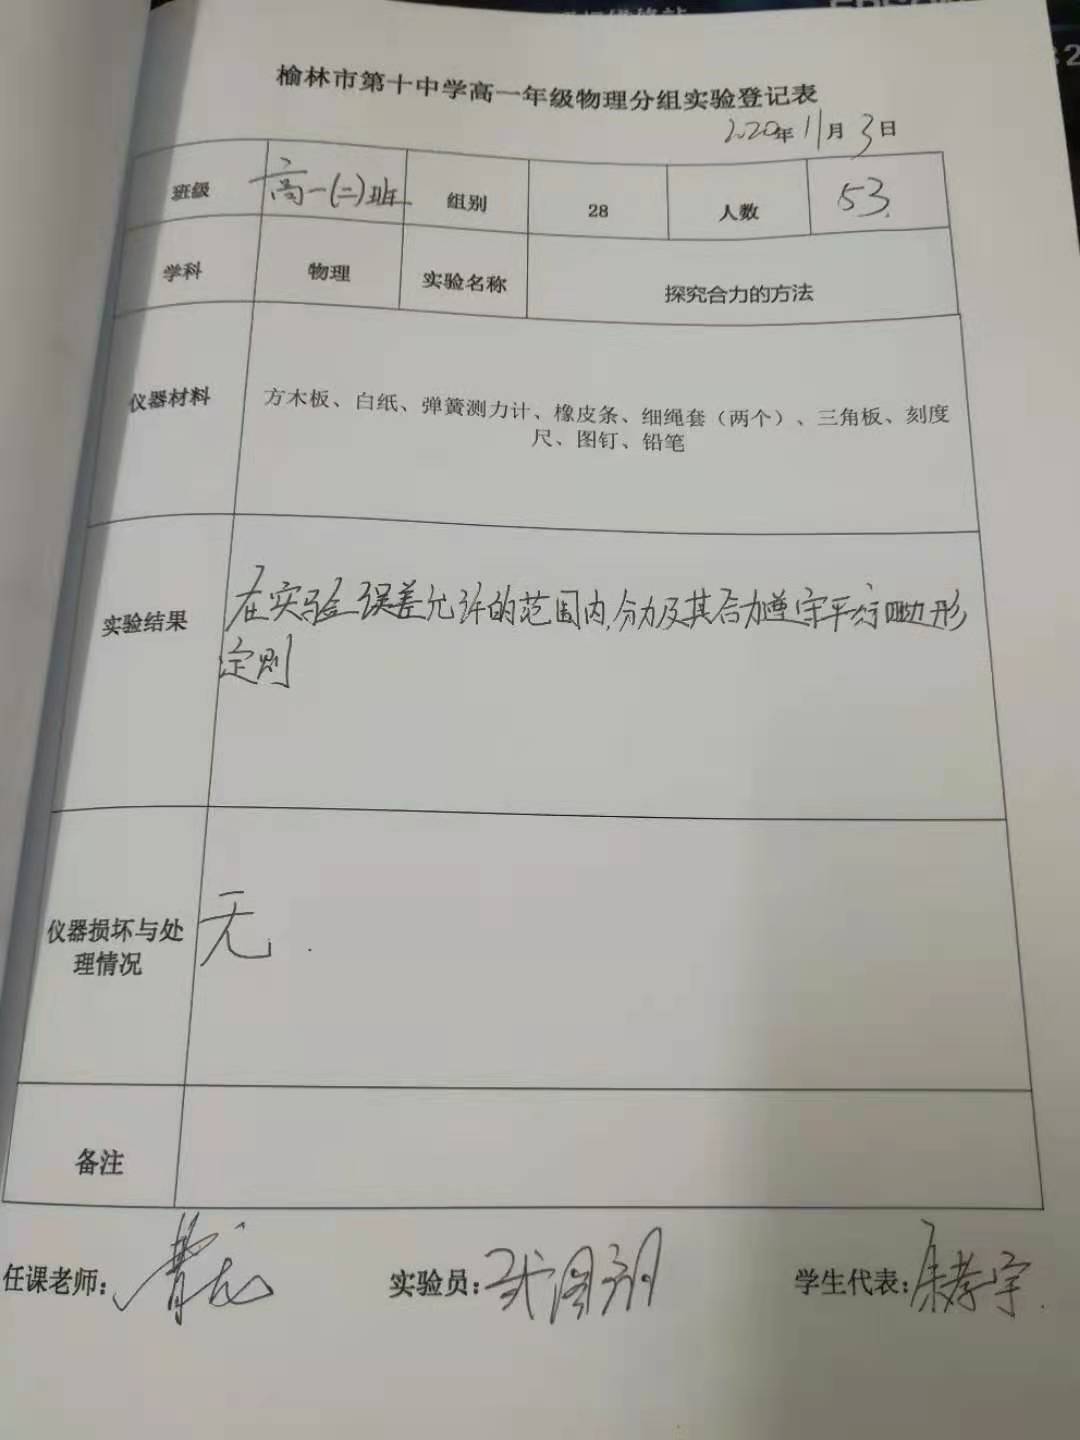 榆林市第十中学高一年级物理分组实验登记表
2020年11月3日
班级 高一(二)班 组别 28 人数 53
学科 物理 实验名称 探究合力的方法
仪器材料 方木板、白纸、弹簧测力计、橡皮条、细绳套（两个）、三角板、刻度
尺、图钉、铅笔
实验结果 在实验误差允许的范围内,分力及其合力遵守平行四边形
定则
仪器损坏与处
理情况
无.
备注
任课老师:
实验员:
学生代表:康孝宇.